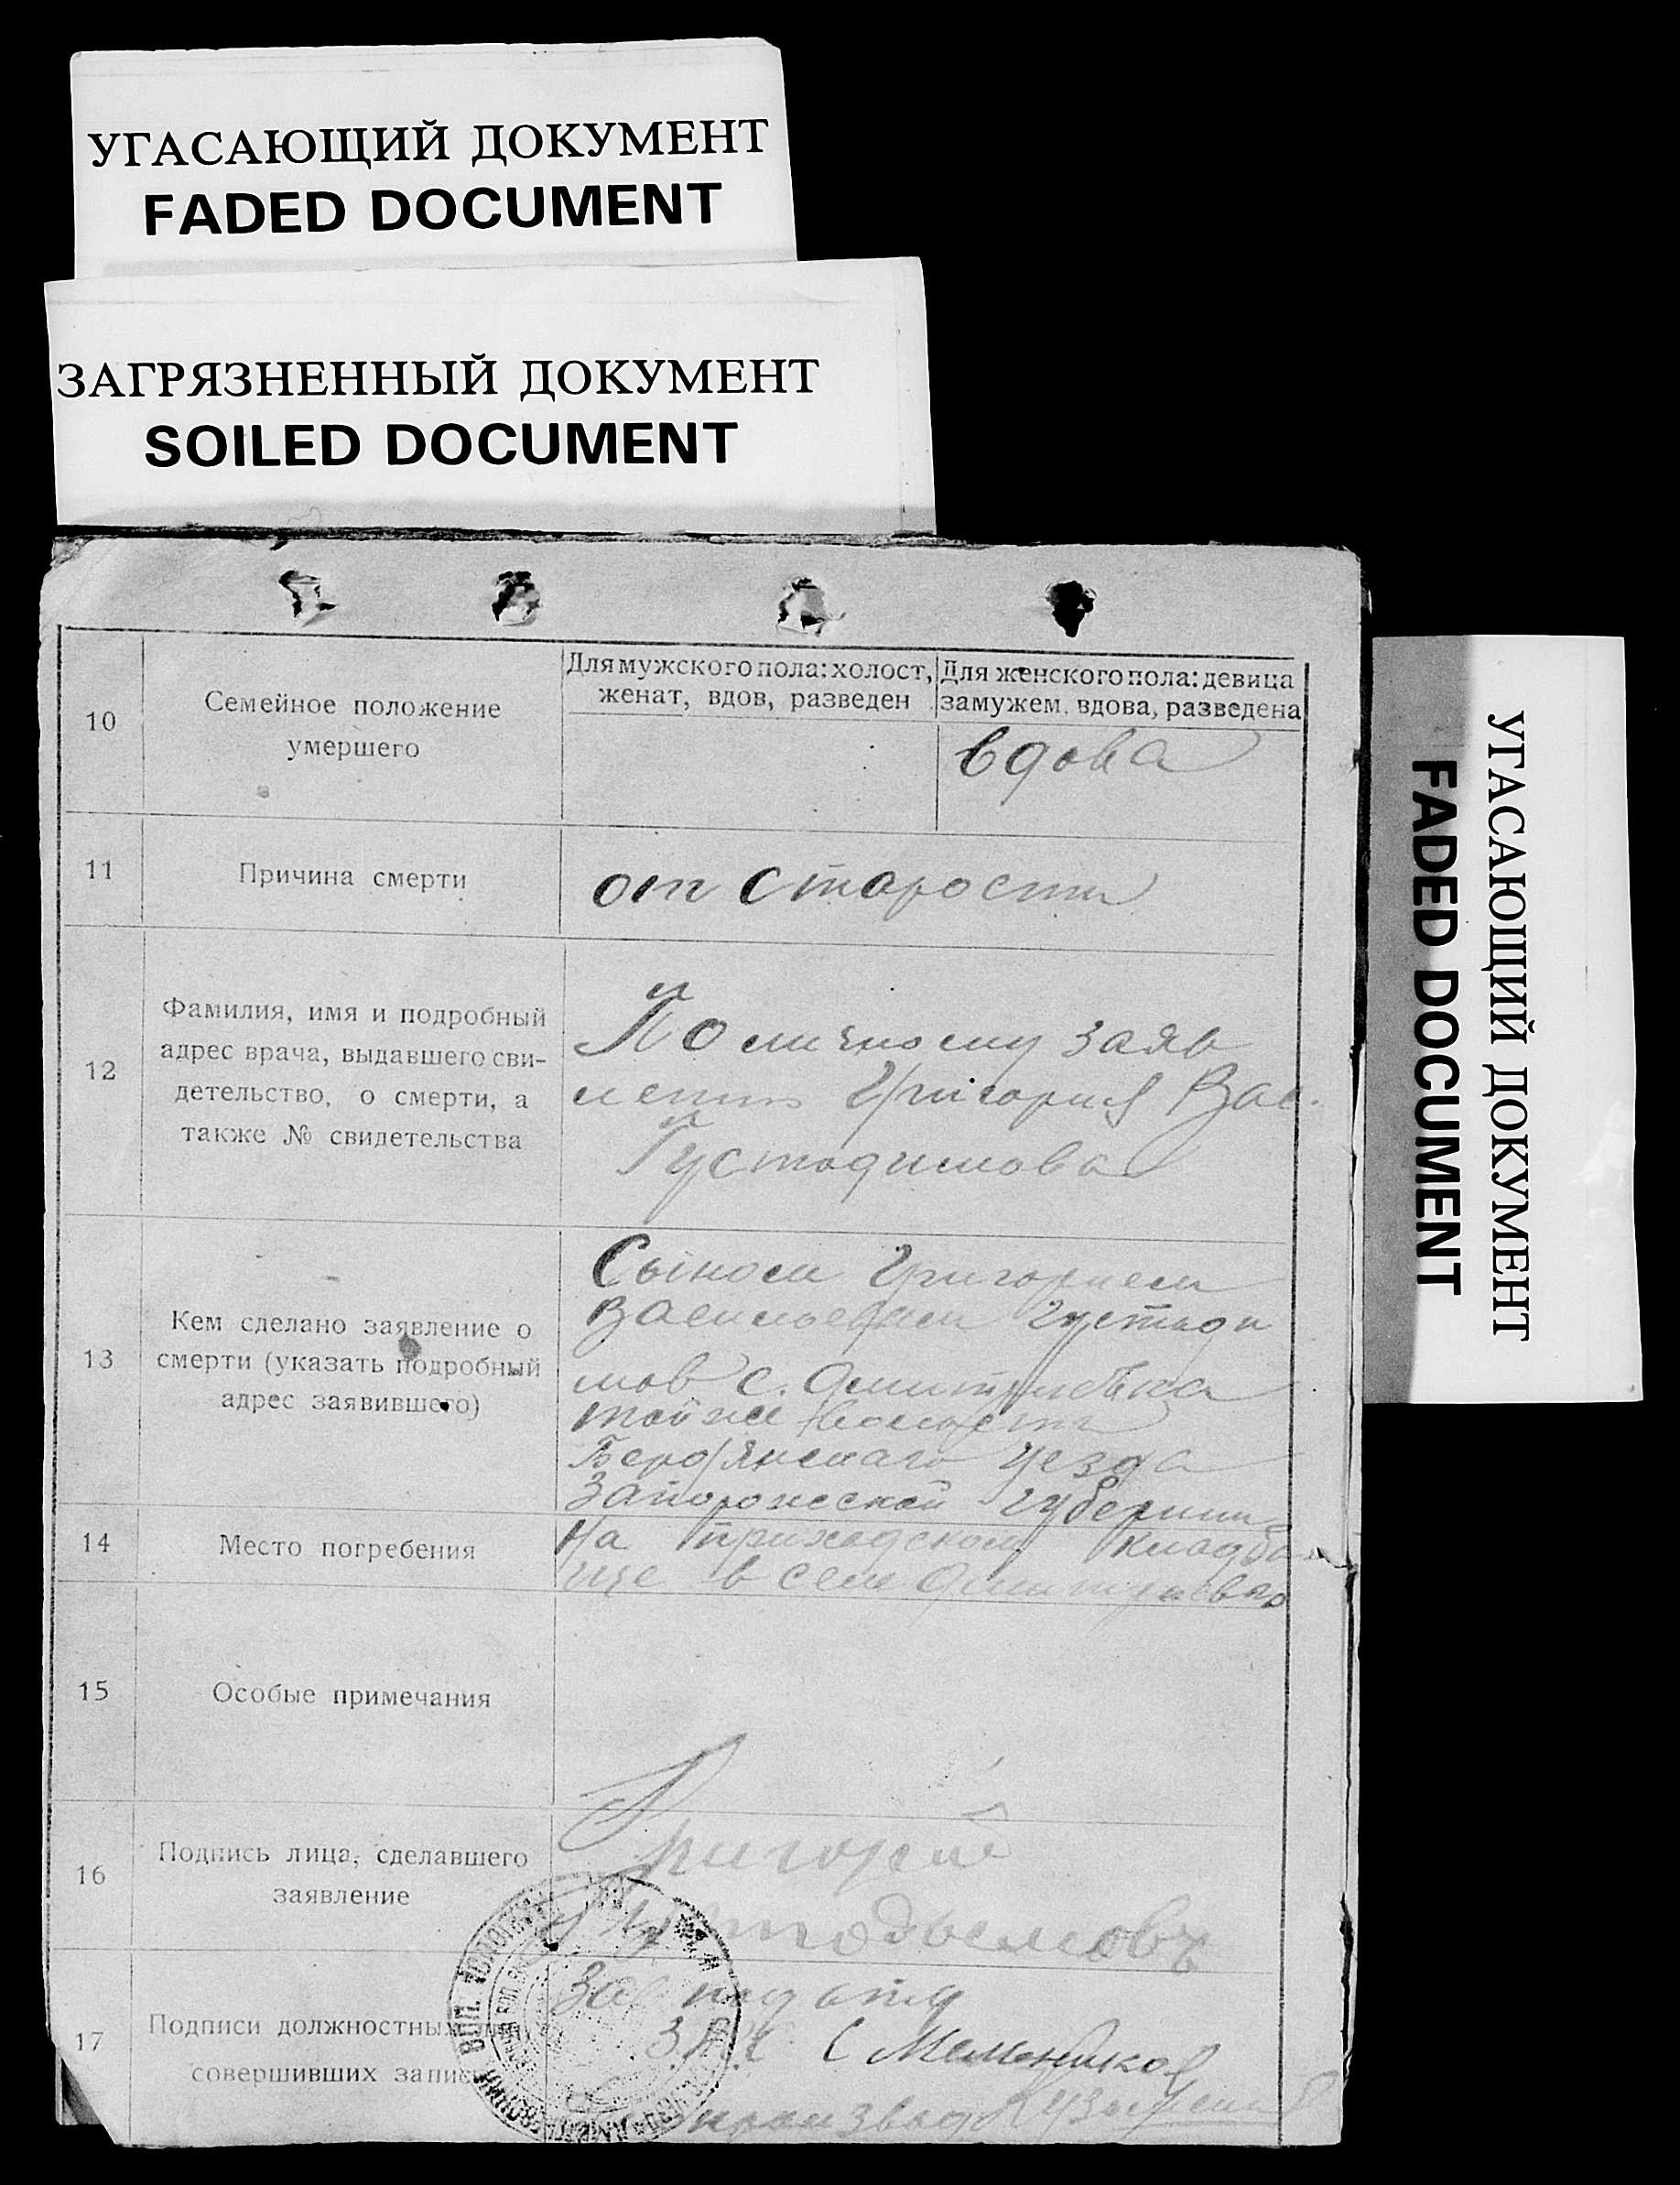 УГАСАЮЩИЙ ДОКУМЕНТ
FADED DOCUMENT
ЗАГРЯЗНЕННЫЙ ДОКУМЕНТ
SOILED DOCUMENT
10
Семейное положение
умершего
Для мужского пола: холост,
женат, вдов, разведен
Для женского пола: девица
замужем. вдова, разведена
вдова
11
Причина смерти
от старости
12
Фамилия, имя и подробный
адрес врача, выдавшего сви-
детельство, о смерти, а
также № свидетельства
По личному заяв
лению Григория Вас.
Густодимова
13
Кем сделано заявление о
смерти (указать подробный
адрес заявившего)
Сыном Григорием
Васильевичем Густоди
мов с. Дмитриевка
той же волости
Бердянскаго уезда
Запорожской губернии
14
Место погребения
На приходском кладби
ще в селе Дмитриевке
15
Особые примечания
16
Подпись лица, сделавшего
заявление
Григорий
17
Подписи должностных
совершивших запис
Зав
ЗАГС Мельников
УГАСАЮЩИЙ ДОКУМЕНТ
FADED DOCUMENT